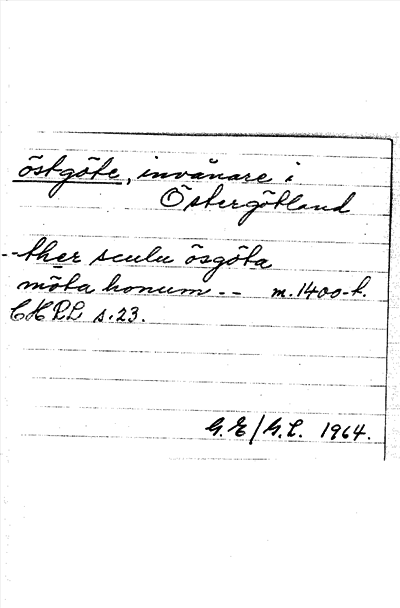 östgöte, invånare i
Östergötland
-- ther sculu ösgöta
möta honum -- m. 1400-t.
CHLL s. 23.
G.E/G.L. 1964.